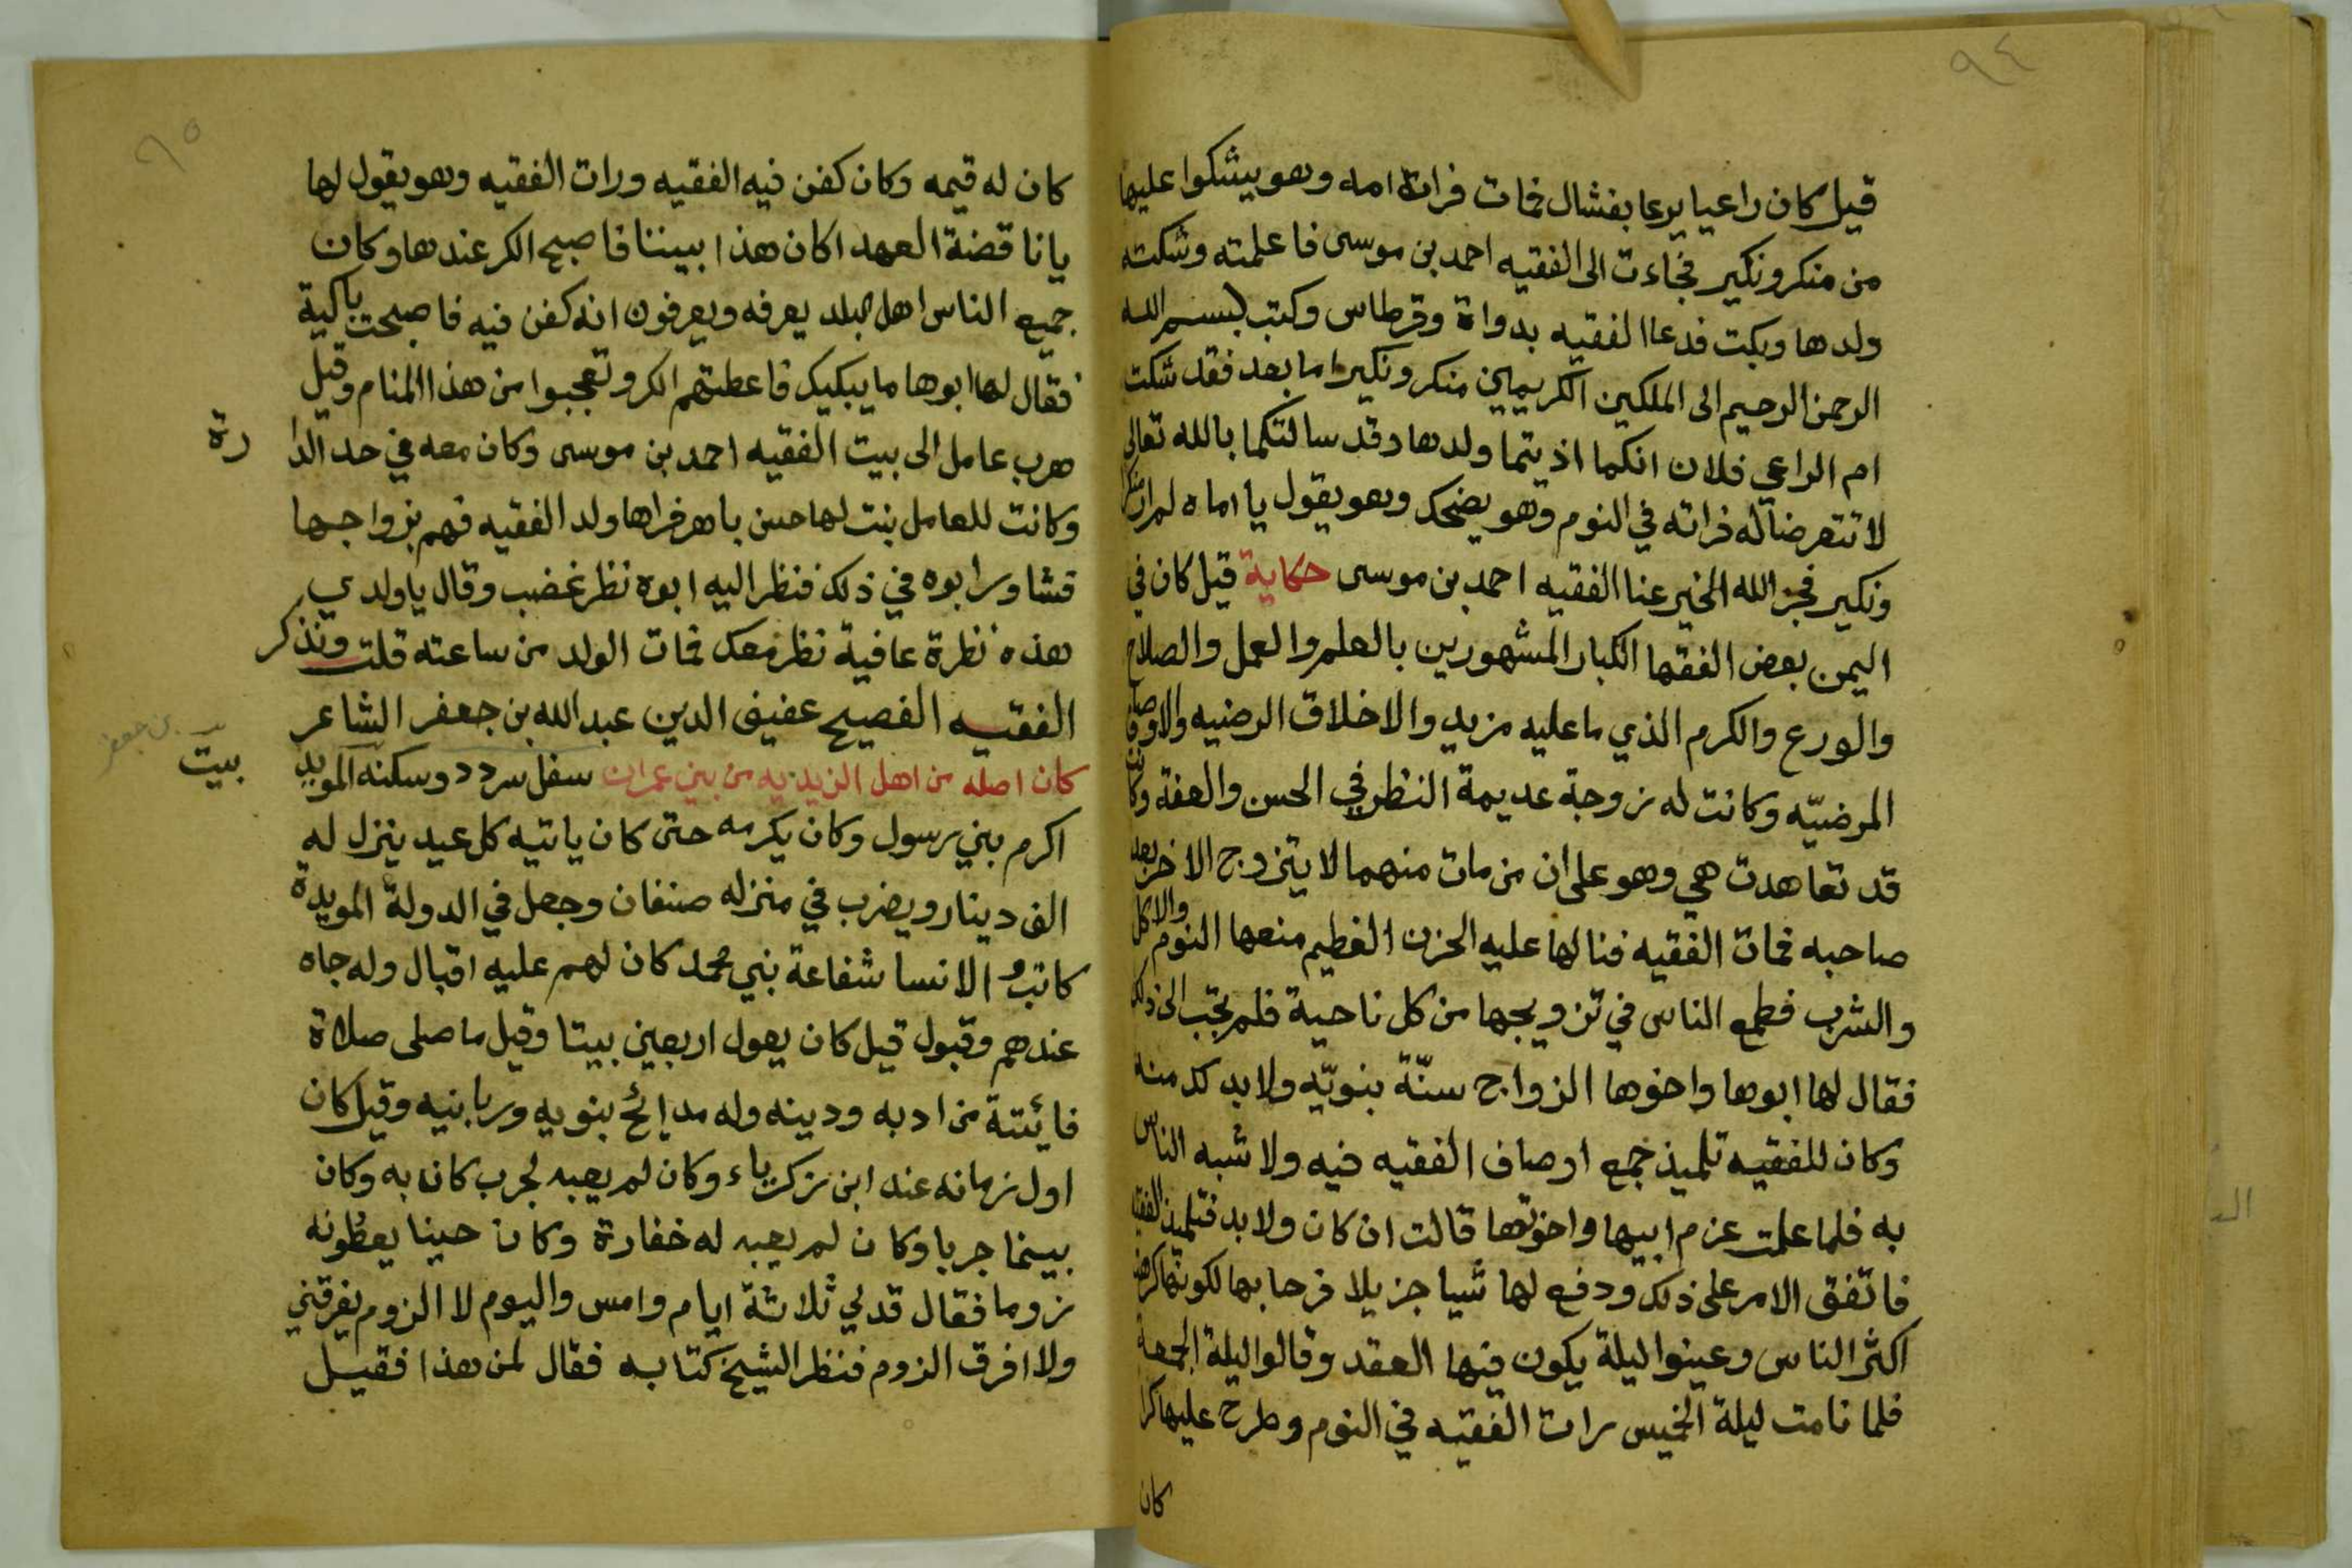 ٩٤
قيل كان راعيا يرعا بفشال فمات فراته امه وهو يشكوا عليها
من منكر ونكير فجاءت الى الفقيه احمد بن موسى فاعلمته وشكت
ولدها وبكت فدعا الفقيه بدواة وقرطاس وكتب بسم الله
الرحمن الرحيم الى الملكين الكريمين منكر ونكير اما بعد فقد شكت
ام الراعي فلان انكما اذيتما ولدها وقد سالتكما بالله تعالى
لا تتعرضا له فراته في النوم وهو يضحك وهو يقول يا اماه لم ار منكرا
ونكير فجز الله الخير عنا الفقيه احمد بن موسى حكاية قيل كان في
اليمن بعض الفقها الكبار المشهورين بالعلم والعمل والصلاح
والورع والكرم الذي ما عليه مزيد والاخلاق الرضيه والاوصاف
المرضيّه وكانت له زوجة عديمة النظر في الحسن والعفة وكانت
قد تعاهدت هي وهو على ان من مات منهما لا يتزوج الاخر بعد
صاحبه فمات الفقيه فنالها عليه الحزن العظيم منعها النوم والاكل
والشرب فطمع الناس في تزويجها من كل ناحية فلم تجب الى ذلك
فقال لها ابوها واخوها الزواج سنّة بنويّه ولا بد كد منه
وكان للفقيه تلميذ جمع اوصاف الفقيه فيه ولا شبه الناس
به فلما علمت عزم ابيها واخوتها قالت ان كان ولا بد فتلميذ الفقيه
فاتفق الامر على ذلك ودفع لها شيا جزيلا فرحا بها لكونها كرهت
اكثر الناس وعينوا ليلة يكون فيها العقد وقالوا ليلة الجمعة
فلما نامت ليلة الخميس رات الفقيه في النوم وطرح عليها كرا
كان
٩٥
كان له قيمه وكان كفن فيه الفقيه ورات الفقيه وهو يقول لها
يا ناقضة العهد اكان هذا بيننا فاصبح الكر عندها وكان
جميع الناس اهل البلد يعرفه ويعرفون انه كفن فيه فاصبحت باكية
فقال لها ابوها ما يبكيك فاعطتهم الكر وتعجبوا من هذا المنام وقيل
هرب عامل الى بيت الفقيه احمد بن موسى وكان معه في حد الدا رة
وكانت للعامل بنت لها حسن باهر فراها ولد الفقيه فهم بزواجها
فشاور ابوه في ذلك فنظر اليه ابوه نظر غضب وقال يا ولدي
هذه نظرة عافية نظر معك فمات الولد من ساعته قلت ونذكر
الفقيه الفصيح عفيف الدين عبد الله بن جعفر الشاعر
بن جعفر
كان اصله من اهل الزيديه من بين عمران سفل سردد وسكنه المويد بيت
اكرم بني رسول وكان يكرمه حتى كان ياتيه كل عيد ينزل له
الف دينار ويضرب في منزله صنفان وجعل في الدولة المويدة
كاتب الانسا شفاعة بني محمد كان لهم عليه اقبال وله جاه
عندهم وقبول قيل كان يعول اربعين بيتا وقيل ما صلى صلاة
فايئتة من ادبه ودينه وله مدائح بنويه وربانيه وقيل كان
اول زمانه عند ابن زكرياء وكان لم يعبه لجرب كان به وكان
بينما جربا وكان لم يعبه له خفارة وكان حينا يعطونه
زوما فقال قد لي ثلاثة ايام وامس واليوم لا الزوم يفرقني
ولا افرق الزوم فنظر الشيخ كتابه فقال لمن هذا فقيل